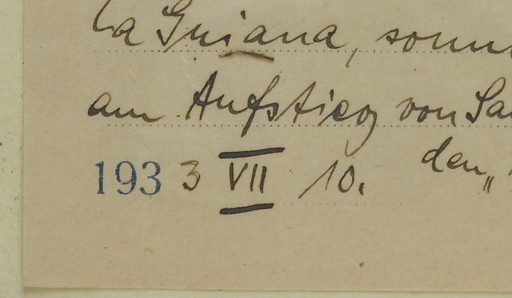 la Guiana, sonn
am Aufstieg von Sa
den „
1933 VII 10.